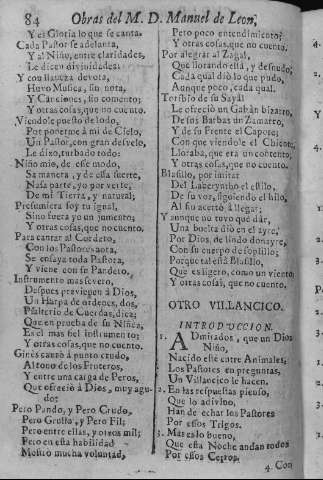 84 Obras del M. D. Manuel de Leon,
Y el Gloria lo que se canta.
Cada Pastor se adelanta,
Y al Niño, entre claridades,
Le dicen divinidades:
Y con llaneza devota,
Huvo Musica, sin nota,
Y Canciones, sin comento;
Y otras cosas, que no cuento.
Viendole puesto de lodo,
Por ponerme à mi de Cielo,
Un Pastor, con gran desvelo,
Le dixo, turbado todo:
Niño mio, de esse modo,
Sa manera, y de essa suerte,
Nasa parte, yo por verte,
De mi Tierra, y natural;
Presumiera soy tu igual,
Sino fuera yo un jumento;
Y otras cosas, que no cuento.
Para cantar al Cordero,
Con los Pastores nota,
Se ensaya toda Pastora,
Y viene con su Pandero.
Instrumento mas severo,
Despues previegen à Dios,
Un Harpa de ordenes, dos,
Psalterio de Cuerdas, dica;
Que en prueba de su Niñez,
Es el mas fiel instrumento;
Y otras cosas, que no cuento.
Ginès cantò à punto crudo,
Al tono de los Fruteros,
Y entre una carga de Peros,
Que ofreciò à Dios, muy agudo:
Pero Pando, y Pero Crudo,
Pero Grullo, y Pero Fil;
Pero entre ellas, y otros mil;
Pero en esta habilidad
Mostrò mucha voluntad,
Pero poco entendimiento;
Y otras cosas, que no cuento.
Por alegrar al Zagal,
Que llorando està, y desnudo;
Cada qual diò lo que pudo,
Aunque poco, cada qual.
Toribio de su Sayal
Le ofreciò un Gabàn bizarro,
De sus Barbas un Zamarro,
Y de su Frente el Capote;
Con que viendole el Chicote,
Lloraba, que era un contento;
Y otras cosas, que no cuento.
Blasillo, por imitar
Del Laberyntho el estilo,
De su voz, siguiendo el hilo,
Al sì acertò à llegar;
Y aunque no tuvo què dàr,
Una buelta diò en el ayre,
Por Dios, de lindo donayre,
Con su cuerpo de soplillo;
Porque tal està Blasillo,
Que es ligero, como un viento;
Y otras cosas, que no cuento.
OTRO VILLANCICO.
INTRODUCCION.
1. ADmirados, que un Dios
Niño,
Naciò este entre Animales;
Los Pastores en preguntas,
Un Villancico le hacen.
2. En las respuestas pienso,
Que lo adivino,
Han de echar los Pastores
Por essos Trigos.
3. Mas es lo bueno,
Que esta Noche andan todos
Por essos Cerros.
4. Con